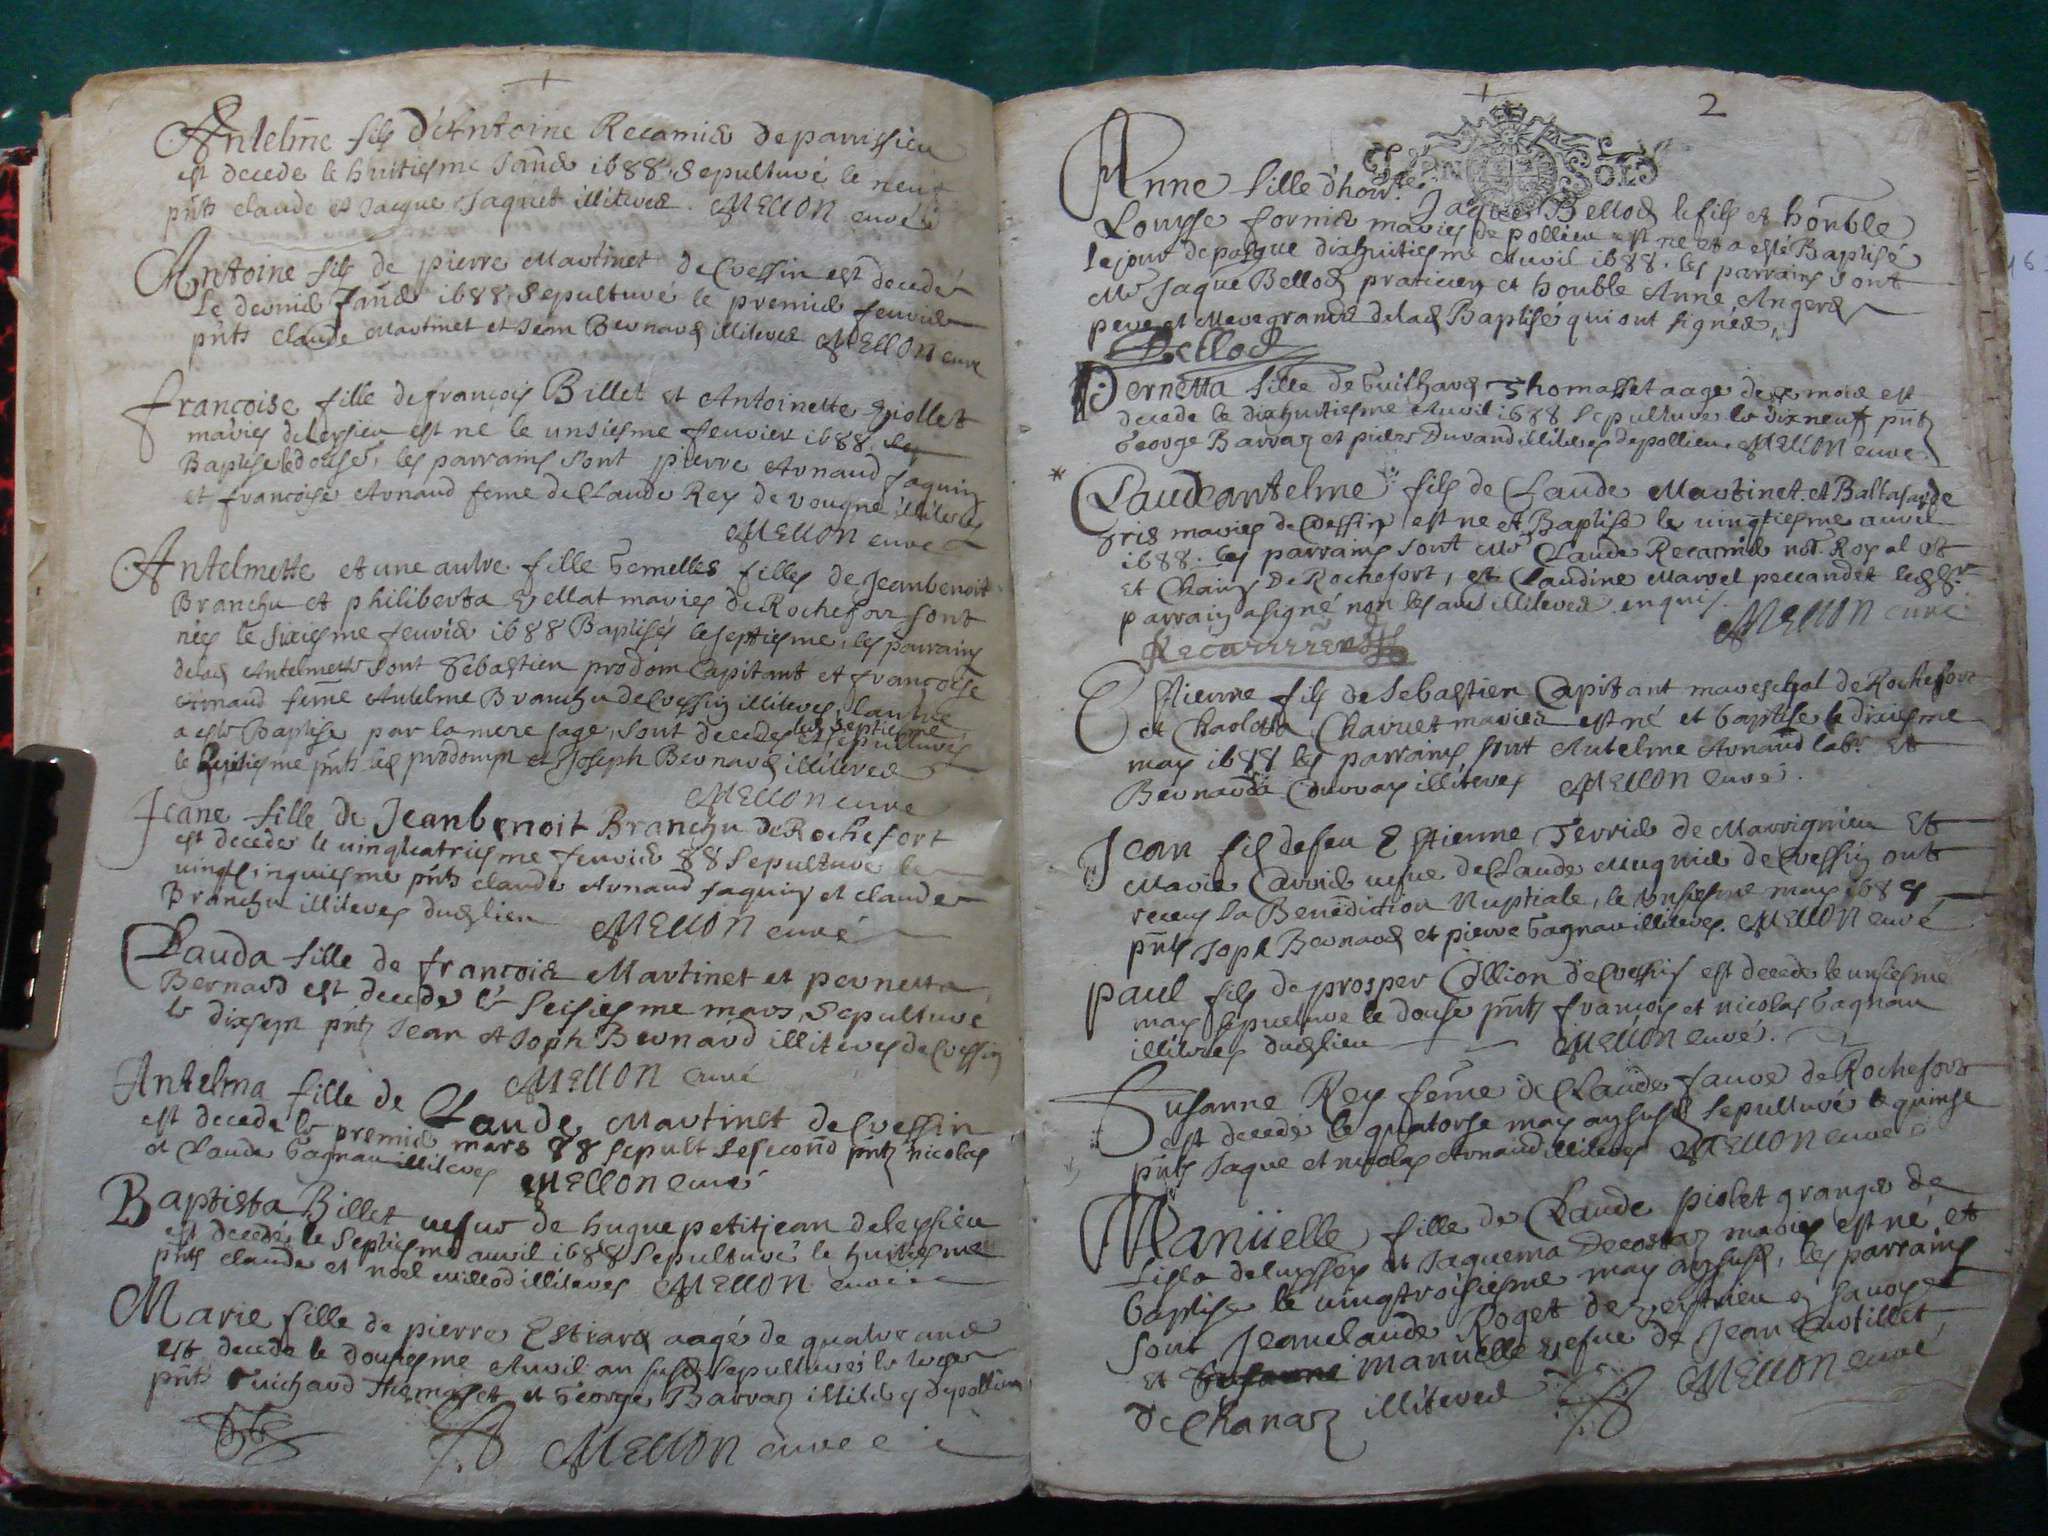 Antelme fils d'Antoine Recamier de parissieu
est decede le huitiesme Janier 1688. Sepulturé le neuf
pnts claude et Jacque Jaquet illiteres. MELLON curé
Antoine fils de pierre Martinet de Cressin est decedé
le dernier Janier 1688. Sepulturé le premier feuvrier
pnts Claude Martinet et Jean Bernard illiteres MELLON curé
francoise fille de françois Billet et Antoinette giollet
mariés de leysieu est ne le unsiesme feuvrier 1688
Baptisé le douse, les parrains sont pierre Arnaud Jaquin
et francoise Arnaud feme de Claude Rey de vougne illiteres
MELLON curé
Antelmette et une autre fille Gemelles filles de Jeanbenoit
Branchu et philiberta Vellat maries de Rochefort sont
nées le sixiesme feuvrier 1688 Baptisés le septiesme, les parrains
de lad Antelmette sont Sebastien prodom Capitant et francoise
Arnaud feme Antelme Branchu de Cressin illiteres, lautre
a esté Baptise par la mere sage, sont decedes le septiesme et sepulturés
le huitiesme pnts led prodompt et Joseph Bernard illiteres
MELLON curé
Jeane fille de Jeanbenoit Branchu de Rochefort
est decede le vinquatriesme feuvrier 88 Sepulturé le
vingtcinquiesme pnts claude Arnaud Jaquin et claude
Branchu illiteres dud lieu MELLON curé
Clauda fille de francois Martinet et pernetta
Bernard est decede le seisiesme mars, Sepulture
le dixsept pnts Jean et Joph Bernard illiteres de Cressin
MELLON curé
Antelma fille de Claude Martinet de Cressin
est decede le premier mars 88 sepult le second pnts nicolas
et Claude Gagnau illiteres MELLON curé
Baptista Billet vefve de hugue petitjean de leysieu
est decedé le septiesme avril 1688 Sepulturé le huitiesme
pnts claude et noel millod illiteres MELLON curé
Marie fille de pierre Estrard aagé de quatre ans
est decede le dousiesme Avril an susd sepulturé le
pnts Guichard Thomasset et George Barraz illiteres de pollieu
MELLON curé
2
Anne fille d'hon Jaques Bellod le fils et honble
Louyse fornier mariés de pollieu est ne et a esté Baptisé
le jour de pasque dixhuitiesme Avril 1688. les parrains sont
Mr Jaque Bellod praticien et honble Anne Angerd
pere et Mere grands de lad Baptisé qui ont signés,
Bellod
Pernetta fille de Guichard Thomasset aage de mois est
decede le dixhuitiesme Avril 1688 sepulture le dixneuf pnts
George Barraz et piere Durand illiteres de pollieu. MELLON curé
* Claudeantelme fils de Claude Martinet et Baltasarde
gris maries de Cressin est ne et Baptise le vingtiesme avril
1688. les parrains sont Mr Claude Recamier not Royal et
et Chatn de Rochefort, et Claudine Marvel peccandet led Sr
parrain a signé non les aus illiteres enquis.
MELLON curé
Recamier
Estienne fils de Sebastien Capitant mareschal de Rochefort
et Charlotta Charvet maries est né et baptise le dixiesme
may 1688 les parrains sont Antelme Arnaud labr et
Bernarda Courray illiteres MELLON curé.
Jean fils de feu Estienne Terrier de Marrignieu et
Marie Carrier vefve de Claude Mugnier de Cressin ont
receu la Benediction Nuptiale, le unsiesme may 1688
pnts Joph Bernard et pierre Gagnau illiteres. MELLON curé
paul fils de prosper Collion de Cressin est decede le unsiesme
may sepulture le douse pnts françois et nicolas Gagnau
illiteres dud lieu MELLON curé.
Susanne Rey feme de Claude favre de Rochefort
est decedé le quatorse may an susd sepulturé le quinse
pnts Jaque et nicolas Arnaud illiteres MELLON curé
Manuelle fille de Claude piolet granger de
de et Jaquema Decostaz maries est né et
baptise le vingtroisiesme may an susd, les parrains
sont Jeanclaude Roget de en Savoye
et manuelle vefve de Jean
de Chanaz illiteres MELLON curé